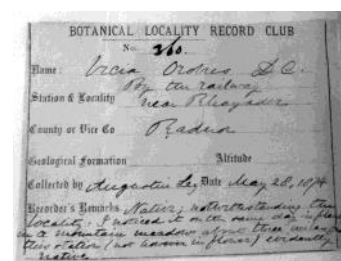 BOTANICAL LOCALITY RECORD CLUB
No. 260.
Name: Vicia Orobus D.C.
Station & Locality By the railway
near Rhayader
County or Vice Co Radnor
Geological Formation Altitude
Collected by Augustin Ley Date May 28, 1874
Recorder's Remarks Native; notwithstanding this
locality, I noticed it on the same day in plenty
in a mountain meadow about three miles from
this station (not in flower) evidently
native